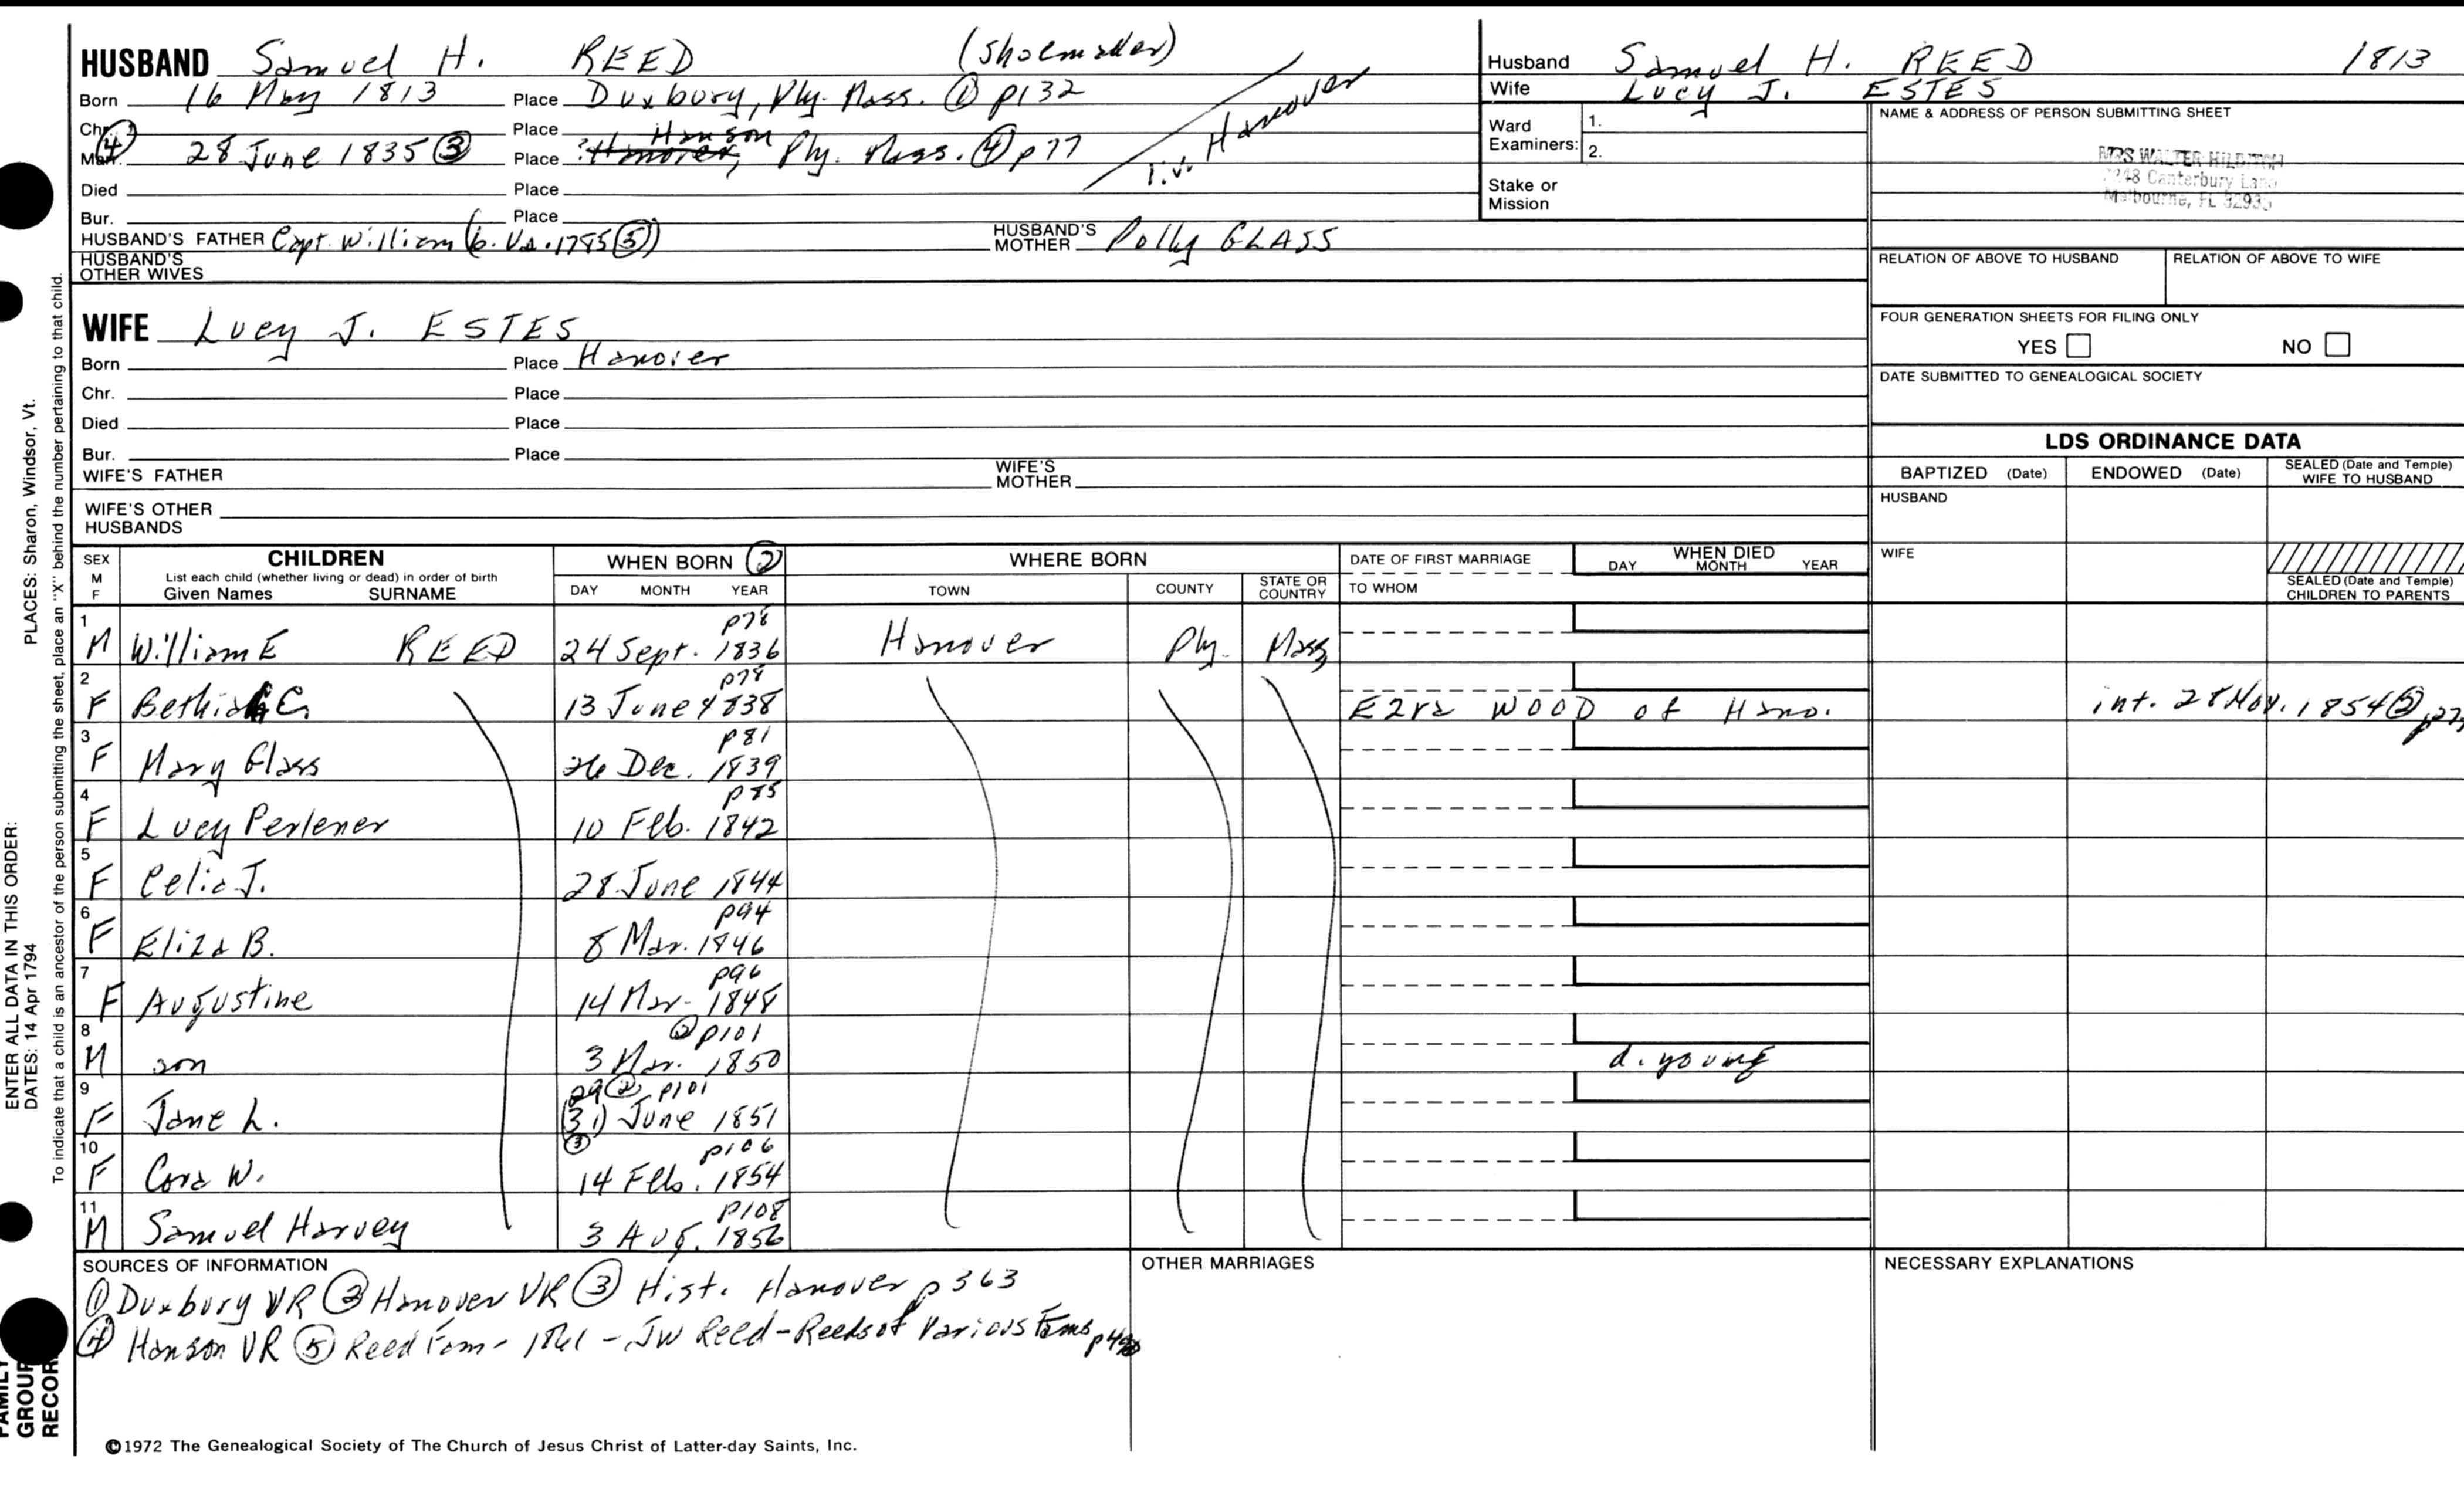 HUSBAND Samuel H. REED (Shoemaker)
Born 16 May 1813 Place Duxbury, Ply. Mass. ① p132
Chr. Place
④ Mar. 28 June 1835 ③ Place ? Hanover, Hanson Ply. Mass. ④ p77 liv. Hanover
Died Place
Bur. Place
HUSBAND'S FATHER Capt. William (b. Va. 1785 ⑤) HUSBAND'S MOTHER Polly GLASS
HUSBAND'S OTHER WIVES
WIFE Lucy J. ESTES
Born Place Hanover
Chr. Place
Died Place
Bur. Place
WIFE'S FATHER WIFE'S MOTHER
WIFE'S OTHER HUSBANDS
Husband Samuel H. REED 1813
Wife Lucy J. ESTES
Ward Examiners: 1.
2.
Stake or Mission
NAME & ADDRESS OF PERSON SUBMITTING SHEET
MRS WALTER
Canterbury
FL
RELATION OF ABOVE TO HUSBAND RELATION OF ABOVE TO WIFE
FOUR GENERATION SHEETS FOR FILING ONLY
YES NO
DATE SUBMITTED TO GENEALOGICAL SOCIETY
LDS ORDINANCE DATA
BAPTIZED (Date) ENDOWED (Date) SEALED (Date and Temple) WIFE TO HUSBAND
HUSBAND
WIFE
SEALED (Date and Temple) CHILDREN TO PARENTS
SEX M F CHILDREN WHEN BORN ② WHERE BORN DATE OF FIRST MARRIAGE WHEN DIED
List each child (whether living or dead) in order of birth
Given Names SURNAME DAY MONTH YEAR TOWN COUNTY STATE OR COUNTRY TO WHOM DAY MONTH YEAR
1 M William E REED 24 Sept. 1836 p78 Hanover Ply. Mass
2 F Bethiah C. 13 June 1838 p78 Ezra WOOD of Hano. int. 28 Nov. 1854 ②
3 F Mary Glass 26 Dec. 1839 p81
4 F Lucy Perlener 10 Feb. 1842 p85
5 F Celia J. 28 June 1844
6 F Eliza B. 8 Mar. 1846 p94
7 F Augustine 14 Mar. 1848 p96
8 M son 3 Mar. 1850 ② p101 d. young
9 F Jane L. 29 ② p101 (31) ③ June 1851
10 F Cora W. 14 Feb. 1854 p106
11 M Samuel Harvey 3 Aug. 1856 p108
SOURCES OF INFORMATION
① Duxbury VR ② Hanover VR ③ Hist. Hanover p 363
④ Hanson VR ⑤ Reed Fam - 1861 - JW Reed - Reeds of Various Fams
OTHER MARRIAGES
NECESSARY EXPLANATIONS
©1972 The Genealogical Society of The Church of Jesus Christ of Latter-day Saints, Inc.
FAMILY GROUP RECORD
ENTER ALL DATA IN THIS ORDER:
DATES: 14 Apr 1794 PLACES: Sharon, Windsor, Vt.
To indicate that a child is an ancestor of the person submitting the sheet, place an "X" behind the number pertaining to that child.